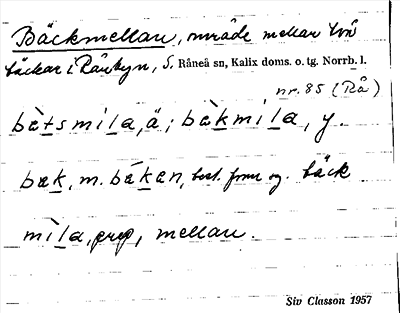 Bäckmellan, område mellan två
bäckar i Rånbyn, S. Råneå sn, Kalix doms. o. tg. Norrb. l.
nr. 85 (Rå)
bètsmìla, ä; bèkmìla, y.
bæk, m. bǽkæn, best. form sg. bäck
mìla, prep, mellan.
Siv Classon 1957